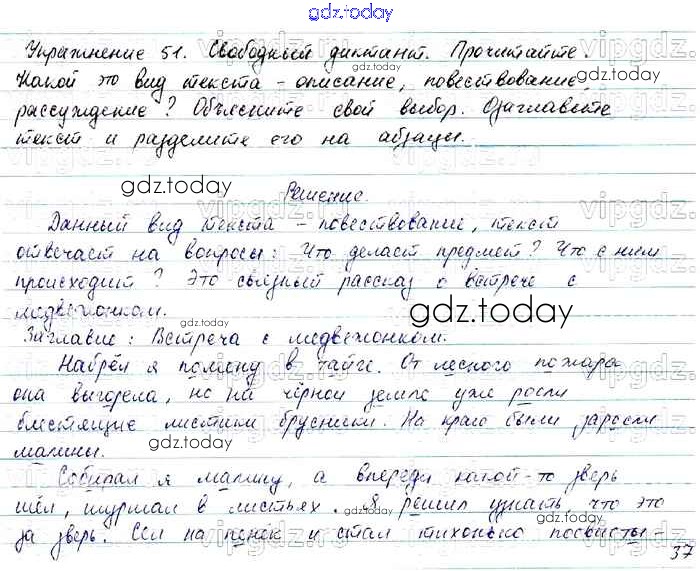 gdz.today
Упражнение 51. Свободный диктант. Прочитайте.
Какой это вид текста - описание, повествование,
gdz.today
рассуждение? Объясните свой выбор. Озаглавьте
текст и разделите его на абзацы.
gdz.today
Решение.
Данный вид текста - повествование, текст
отвечает на вопросы: Что делает предмет? Что с ним
происходит? Это связный рассказ о встрече с
медвежонком.
gdz.today
Заглавие: Встреча с медвежонком.
Набрёл я поляну в тайге. От лесного пожара
она выгорела, но на чёрной земле уже росли
блестящие листики брусники. На краю были заросли
gdz.today
малины.
Собирал я малину, а впереди какой-то зверь
шёл, шуршал в листьях. Я решил узнать, что это
gdz.today
за зверь. Сел на пенёк и стал тихонько посвисты
37